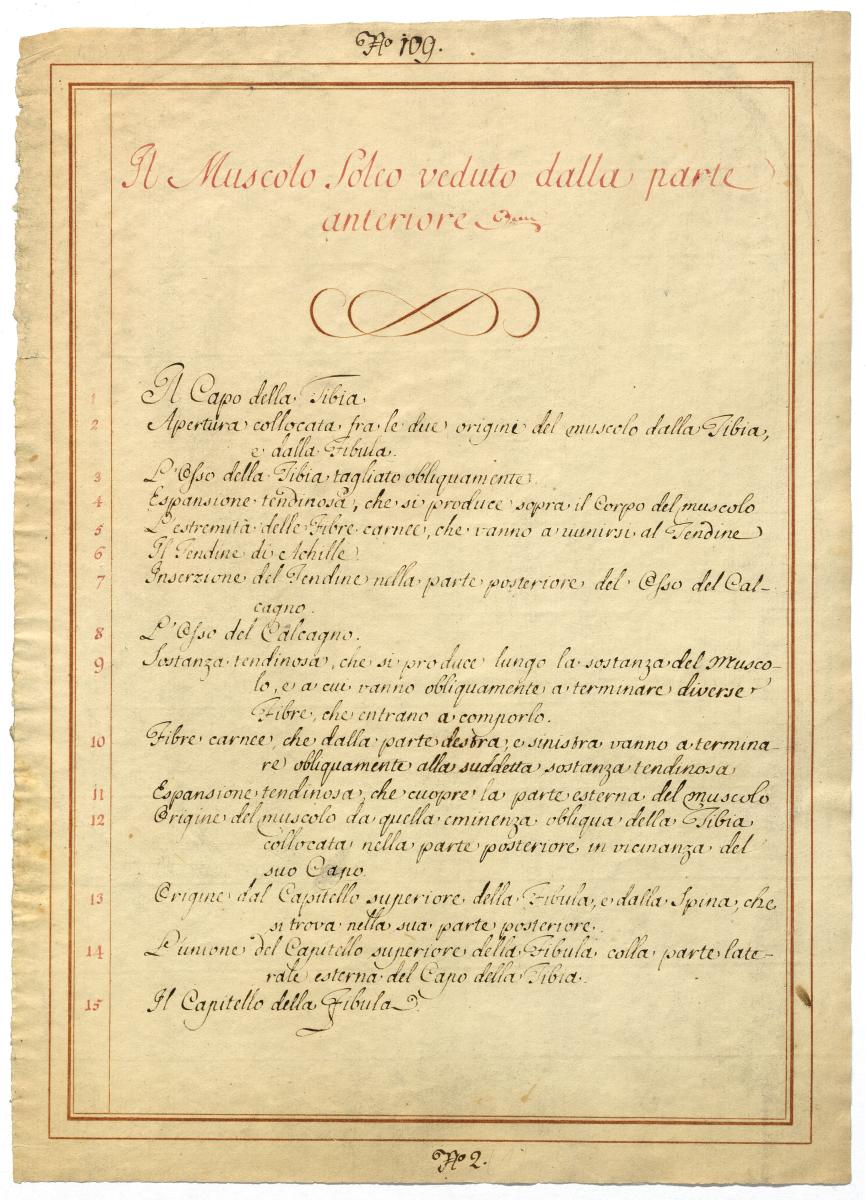 No 109.
Il Muscolo Soleo veduto dalla parte
anteriore
1 Il Capo della Tibia
2 Apertura collocata fra le due origini del muscolo dalla Tibia,
e dalla Fibula.
3 L'Osso della Tibia tagliato obliquamente.
4 Espansione tendinosa, che si produce sopra il Corpo del muscolo
5 L'estremità delle Fibre carnee, che vanno a riunirsi al Tendine
6 Il Tendine di Achille.
7 Inserzione del Tendine nella parte posteriore del Osso del Cal-
cagno.
8 L'Osso del Calcagno.
9 Sostanza tendinosa, che si produce lungo la sostanza del Musco-
lo, e a cui vanno obliquamente a terminare diverse
Fibre, che entrano a comporlo.
10 Fibre carnee, che dalla parte destra, e sinistra vanno a termina-
re obliquamente alla suddetta sostanza tendinosa
11 Espansione tendinosa, che cuopre la parte esterna del muscolo
12 Origine del muscolo da quella eminenza obliqua della Tibia
collocata nella parte posteriore in vicinanza del
suo Capo.
13 Origine dal Capitello superiore della Fibula, e dalla Spina, che
si trova nella sua parte posteriore.
14 L'unione del Capitello superiore della Fibula colla parte late-
rale esterna del Capo della Tibia.
15 Il Capitello della Fibula.
No 2.